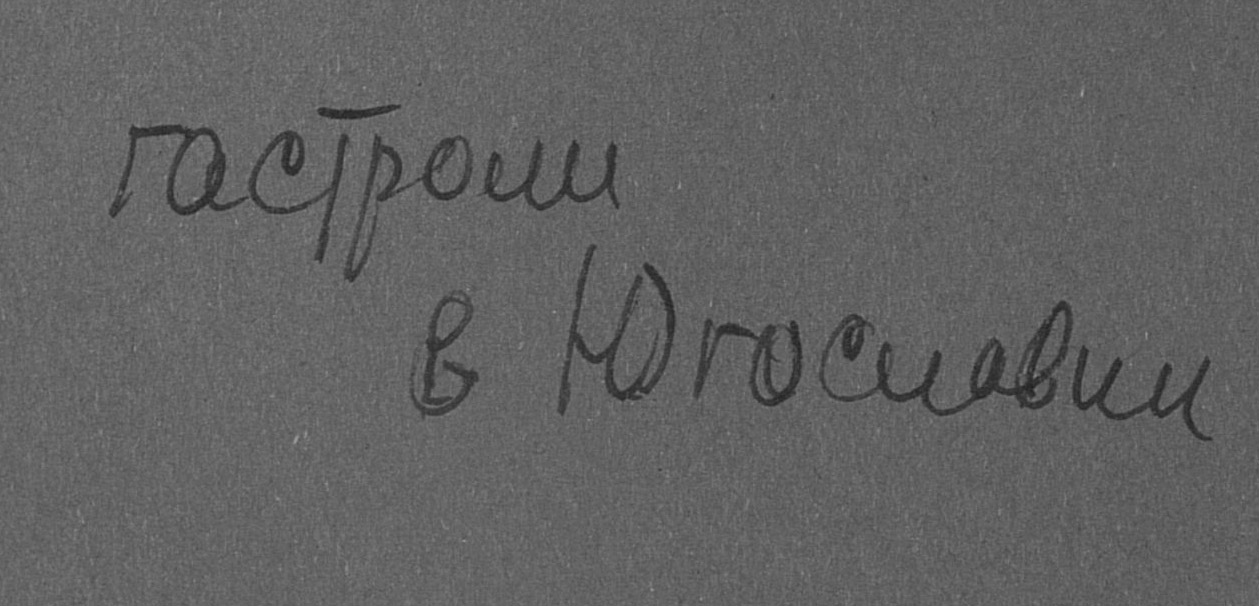 гастроли
в Югославии